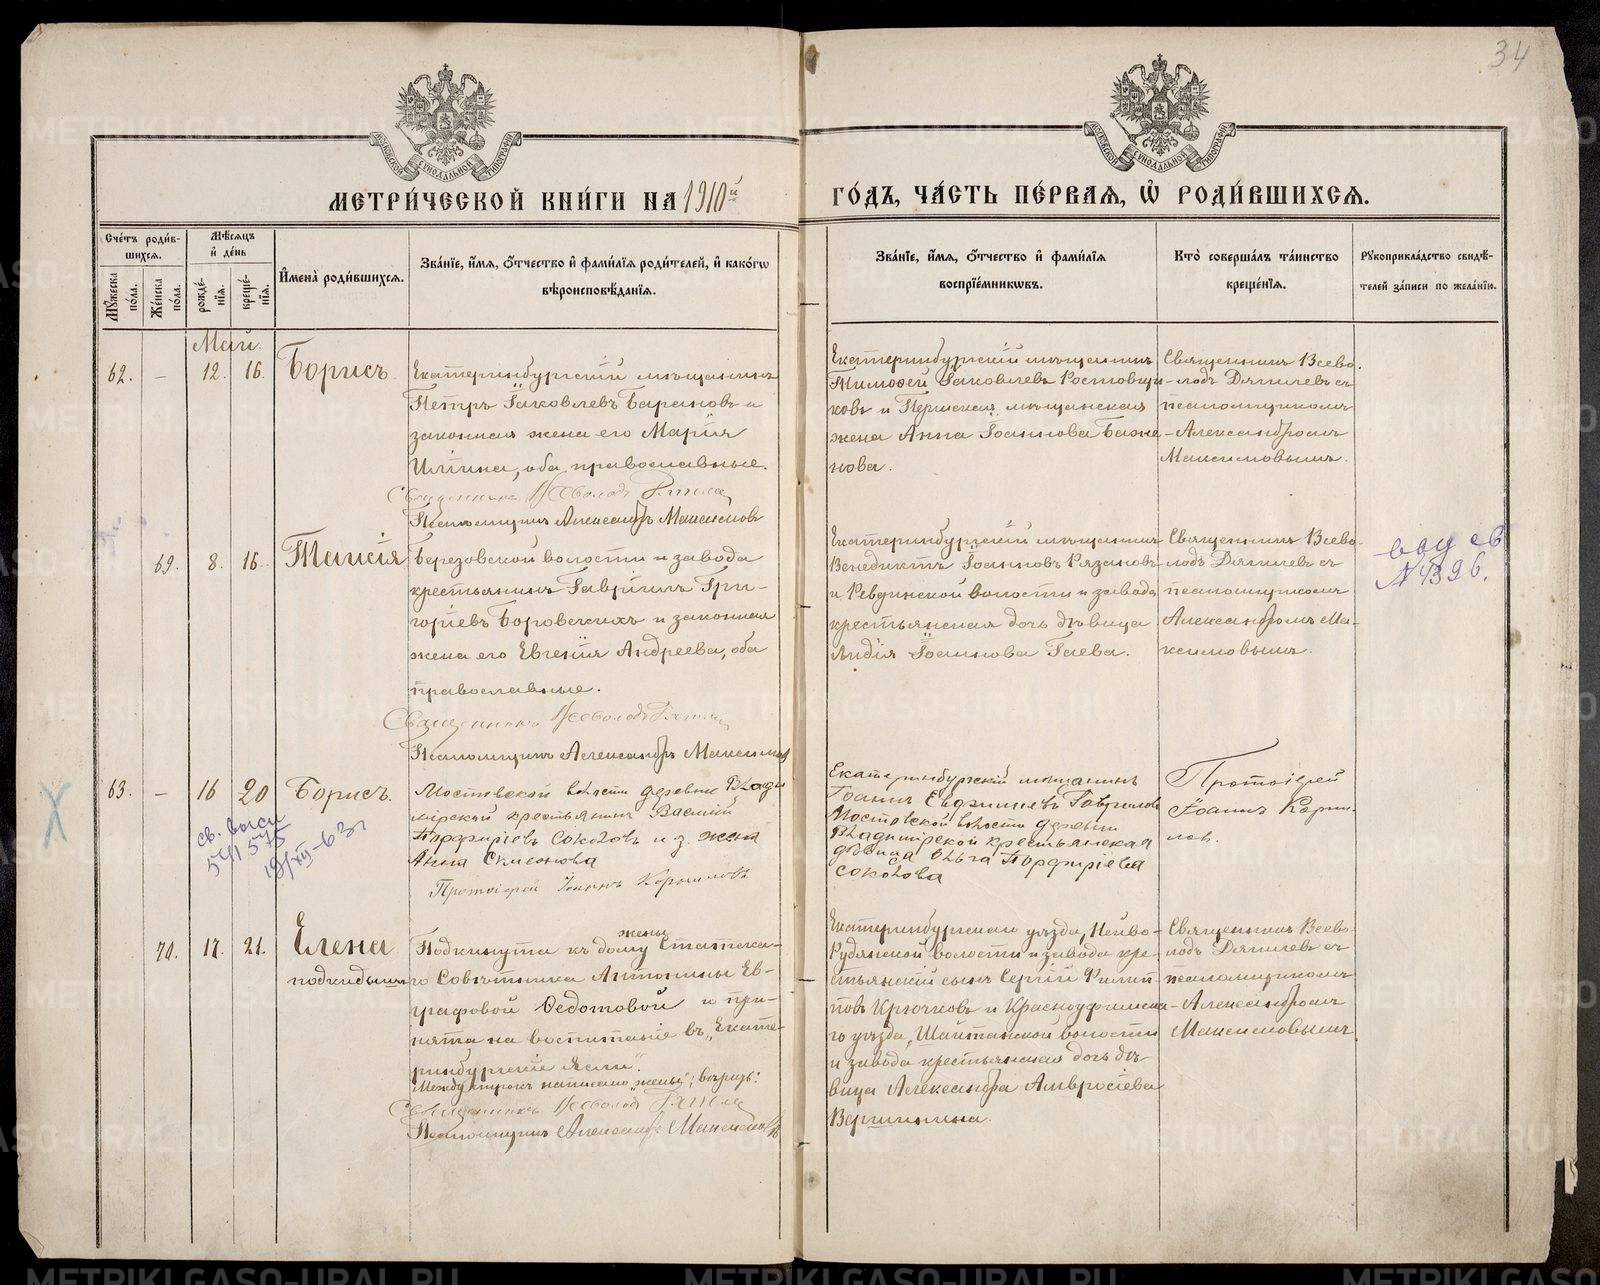 34
МОСКОВСКОЙ СѴНОДАЛЬНОЙ ТИПОГРАФІИ
МОСКОВСКОЙ СѴНОДАЛЬНОЙ ТИПОГРАФІИ
МЕТРИ́ЧЕСКОЙ КНИ́ГИ НА 1910й ГО́ДЪ, ЧА́СТЬ ПЕ́РВАѦ, Ѡ҆ РОДИ́ВШИХСѦ.
Сче́тъ роди́в-
шихсѧ.
Мꙋ́жеска по́ла.
Же́нска по́ла.
Мѣ́сѧцъ
и҆ де́нь
рожде́-
нїѧ.
креще́-
нїѧ.
И҆мена̀ роди́вшихсѧ.
Зва́нїе, и҆́мѧ, ѻ҆́тчество и҆ фами́лїѧ роди́телей, и҆ како́гѡ
вѣроисповѣ́данїѧ.
Зва́нїе, и҆́мѧ, ѻ҆́тчество и҆ фами́лїѧ
воспрїе́мникѡвъ.
Кто̀ соверша́лъ та́инство
креще́нїѧ.
Рꙋкоприкла́дство свидѣ́-
телей за́писи по жела́нїю.
Май.
62. — 12. 16. Борисъ.
Екатеринбургскій мѣщанинъ
Петръ Іаковлевъ Барановъ и
законная жена его Марія
Ильина, оба православные.
Священникъ Всеволодъ
Псаломщикъ Александръ Максимовъ
Екатеринбургскій мѣщанинъ
Тимофей Іаковлевъ Ростовщи
ковъ и Пермская мѣщанская
жена Анна Іоаннова Баже-
нова.
Священникъ Всево-
лодъ Дягилевъ съ
псаломщикомъ
Александромъ
Максимовымъ.
69. 8. 16. Таисія
Березовской волости и завода
крестьянинъ Гавріилъ Гри-
горіевъ Боровскихъ и законная
жена его Евгенія Андреева, оба
православные.
Священникъ Всеволодъ
Псаломщикъ Александръ Максимовъ
Екатеринбургскій мѣщанинъ
Венедиктъ Іоанновъ Рязановъ
и Ревдинской волости и завода
крестьянская дочь дѣвица
Лидія Іоаннова Гаева.
Священникъ Всево-
лодъ Дягилевъ съ
псаломщикомъ
Александромъ Ма-
ксимовымъ.
св
№ 4396.
63. — 16 20 Борисъ.
св.
541 575
19/XII-63г
Мостовской волости деревни Влади
мірской крестьянинъ Василій
Порфиріевъ Соколовъ и з. жена
Анна Симеонова
Протоіерей Іоаннъ Корниловъ
Екатеринбургскій мѣщанинъ
Іоаннъ Гавриловъ
Мостовской волости деревни
Владимірской крестьянская
дѣвица Ольга Порфиріева
Соколова
Протоіерей
Іоаннъ Корни-
ловъ.
70. 17. 21. Елена
подкидышъ
жены
Подкинута къ дому Статска-
го Совѣтника Антонины Ев-
графовой Ѳедотовой и при-
нята на воспитаніе въ „Екате-
ринбургскіе Ясли".
Между строкъ написано „жены"; вѣрить:
Священникъ Всеволодъ
Псаломщикъ Александръ Максимовъ
Екатеринбургскаго уѣзда, Нейво-
Рудянской волости и завода кре-
стьянскій сынъ Сергій Филип-
повъ Крючковъ и Красноуфимска-
го уѣзда, Шайтанской волости
и завода крестьянская дочь дѣ-
вица Александра Амвросіева
Вершинина.
Священникъ Всево-
лодъ Дягилевъ съ
псаломщикомъ
Александромъ
Максимовымъ
METRIKI.GASO-URAL.RU